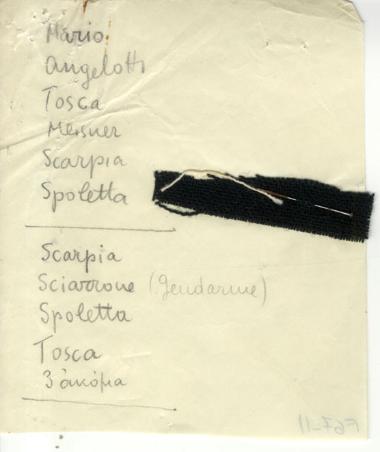 Mario
Angelotti
Tosca
Mesner
Scarpia
Spoletta
Scarpia
Sciarrone (Gendarme)
Spoletta
Tosca
3 ἀκόμα